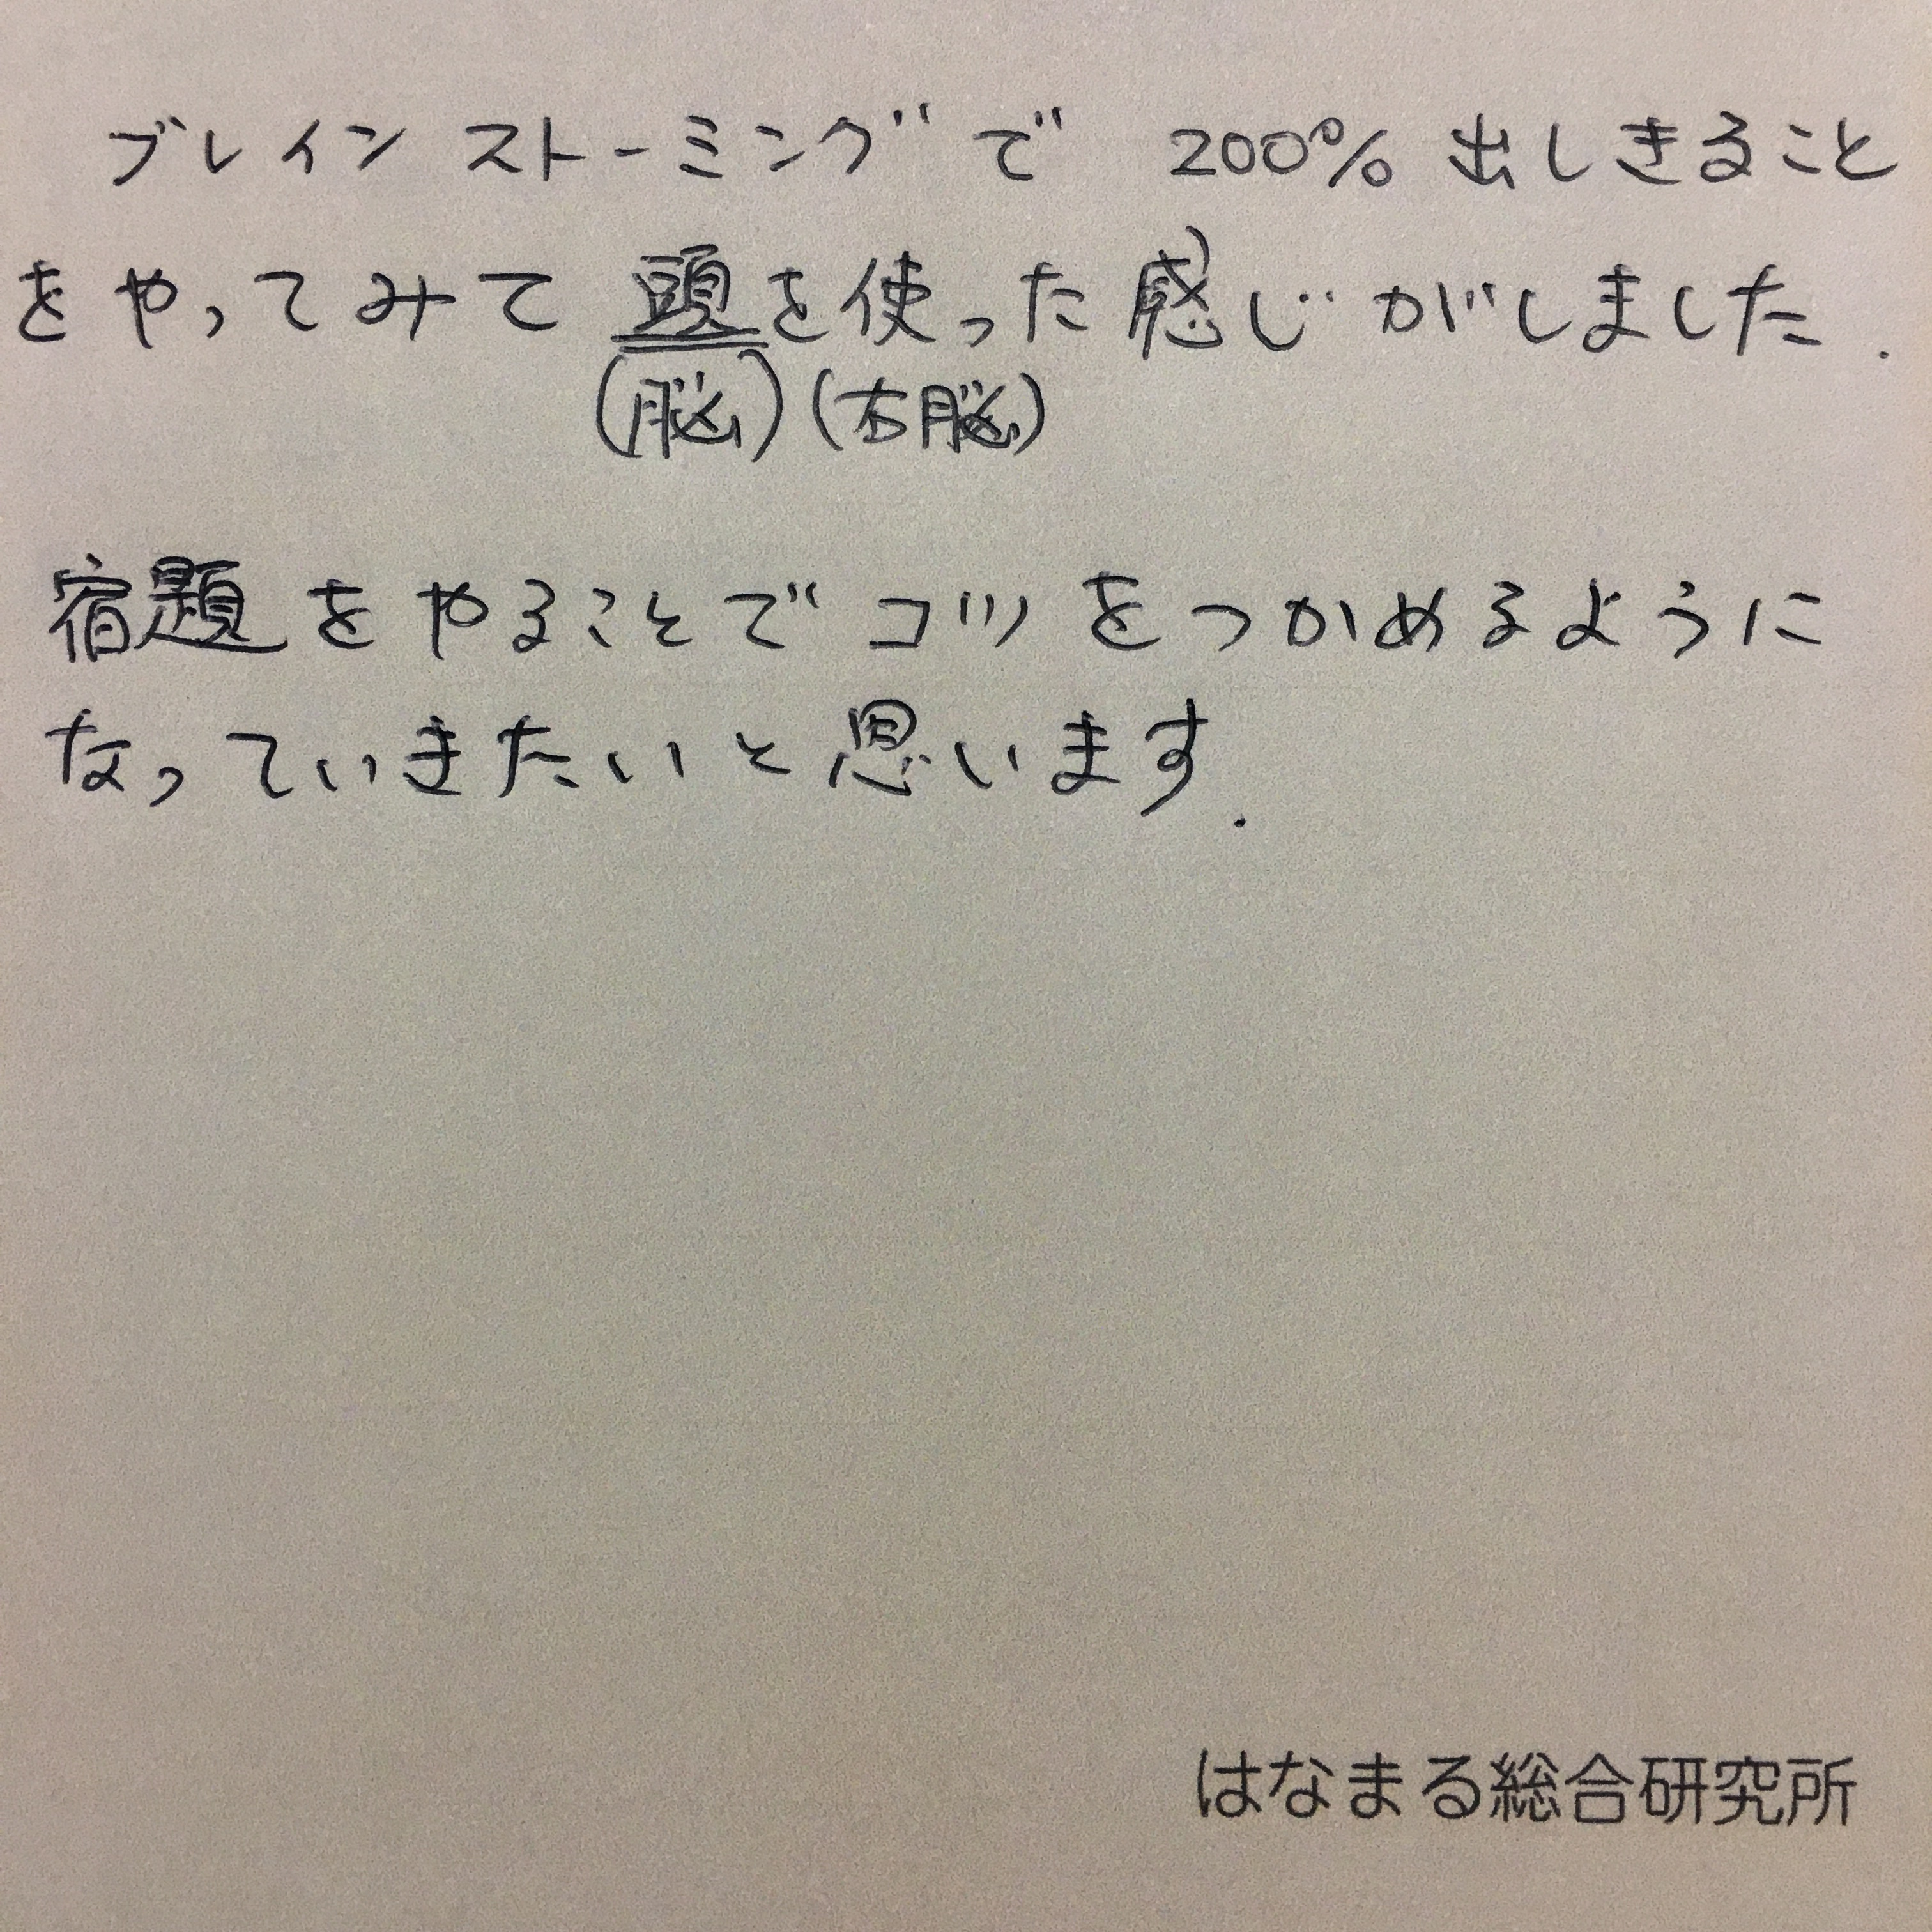 ブレインストーミングで 200% 出しきること
をやってみて頭を使った感じがしました.
(脳)(右脳)
宿題をやることでコツをつかめるように
なっていきたいと思います.
はなまる総合研究所